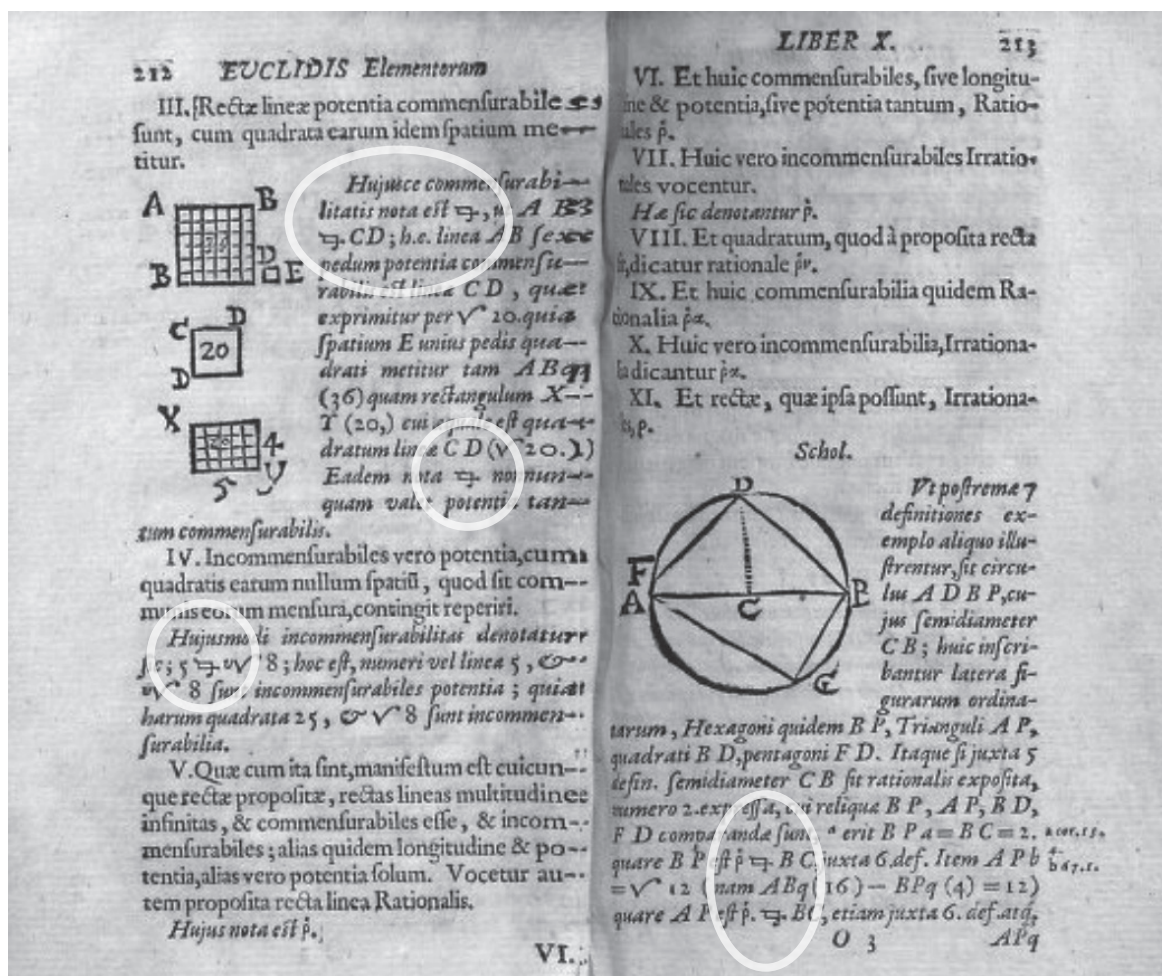 212 EUCLIDIS Elementorum
III. [Rectæ lineæ potentia commenſurabiles
ſunt, cum quadrata earum idem ſpatium me-
titur.
Hujuſce commenſurabi-
litatis nota eſt ⊐, A B
⊐. CD; h.e. linea AB ſex
pedum potentia commenſu-
rabilis eſt linea C D, quæ
exprimitur per √ 20. quia
ſpatium E unius pedis qua-
drati metitur tam ABq
(36) quam rectangulum X-
Y (20,) cui eſt qua-
dratum lineæ C D (√ 20.)
Eadem nota ⊐ nonnun-
quam valet potentia tan-
tum commenſurabilis.
A B
B D E
C D
20
D
X
4
5 y
IV. Incommenſurabiles vero potentia, cum
quadratis earum nullum ſpatiū, quod ſit com-
munis eorum menſura, contingit reperiri.
Hujuſmodi incommenſurabilitas denotatur
ſic; 5 ⊐ v√ 8; hoc eſt, numeri vel lineæ 5, &
v√ 8 ſunt incommenſurabiles potentia; quia
harum quadrata 25, & √ 8 ſunt incommen-
ſurabilia.
V. Quæ cum ita ſint, manifeſtum eſt cuicun-
que rectæ propoſitæ, rectas lineas multitudine
infinitas, & commenſurabiles eſſe, & incom-
menſurabiles; alias quidem longitudine & po-
tentia, alias vero potentia ſolum. Vocetur au-
tem propoſita recta linea Rationalis.
Hujus nota eſt ṗ.
VI.
LIBER X. 213
VI. Et huic commenſurabiles, ſive longitu-
ine & potentia, ſive potentia tantum, Ratio-
ales ṗ.
VII. Huic vero incommenſurabiles Irratio-
ales vocentur.
Hæ ſic denotantur ṗ.
VIII. Et quadratum, quod à propoſita recta
fit, dicatur rationale ṗν.
IX. Et huic commenſurabilia quidem Ra-
tionalia ṗα.
X. Huic vero incommenſurabilia, Irrationa-
la dicantur ṗα.
XI. Et rectæ, quæ ipſa poſſunt, Irrationa-
ρ.
Schol.
D
F
A C B
G
Vt poſtremæ 7
definitiones ex-
emplo aliquo illu-
ſtrentur, ſit circu-
lus A D B P, cu-
jus ſemidiameter
C B; huic inſcri-
bantur latera fi-
gurarum ordina-
tarum, Hexagoni quidem B P, Trianguli A P,
quadrati B D, pentagoni F D. Itaque ſi juxta 5
defin. ſemidiameter C B ſit rationalis expoſita,
numero 2. expreſſa, cui reliquæ B P, A P, B D,
F D comparandæ ſunt, a erit B P a = B C = 2. a cor. 15.
quare B P eſt ṗ ⊐. B C, juxta 6. def. Item A P b 4.
= √ 12 (nam ABq (16) − BPq (4) = 12) b 47.1.
quare A P eſt ṗ. ⊐. BC, etiam juxta 6. def. atq,
O 3 APq